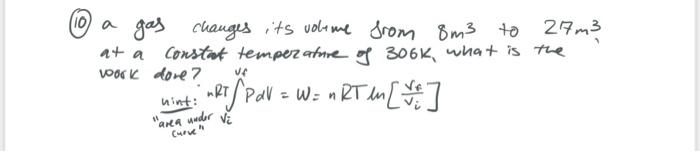 (10) a gas changes its volume from 8m³ to 27m³
at a constat temperature of 306K, what is the
work done?
hint: nRT ∫ Vf Vi PdV = W = nRT ln[Vf/Vi]
"area under
curve"